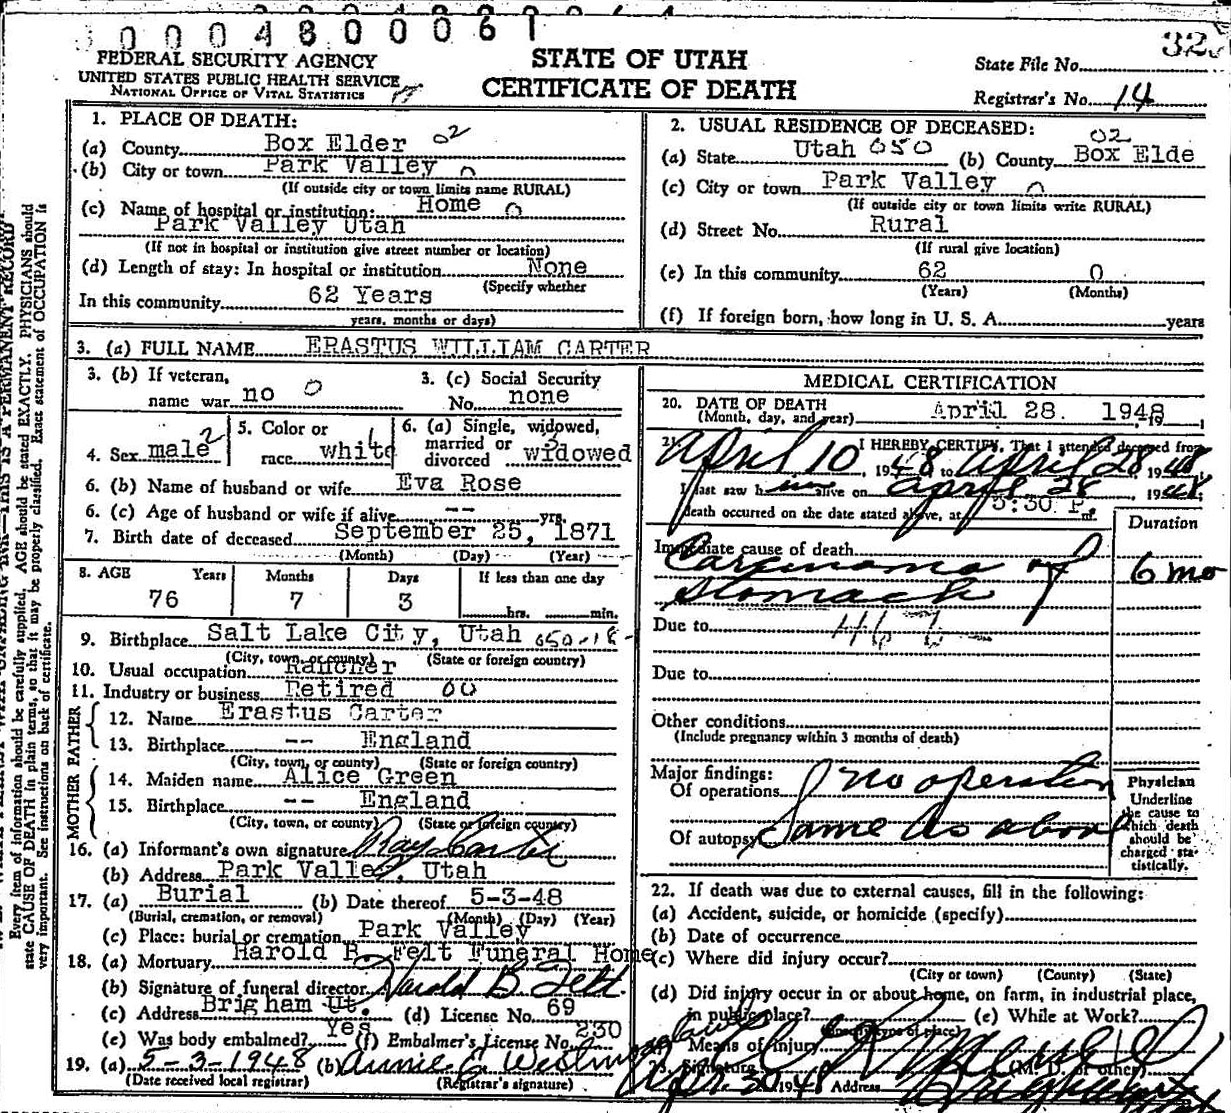 3000480061
32
FEDERAL SECURITY AGENCY
UNITED STATES PUBLIC HEALTH SERVICE
NATIONAL OFFICE OF VITAL STATISTICS
STATE OF UTAH
CERTIFICATE OF DEATH
State File No.
Registrar's No. 14
1. PLACE OF DEATH:
(a) County Box Elder 02
(b) City or town Park Valley 0
(If outside city or town limits name RURAL)
(c) Name of hospital or institution: Home 0
Park Valley Utah
(If not in hospital or institution give street number or location)
(d) Length of stay: In hospital or institution None
(Specify whether
In this community 62 Years
years, months or days)
2. USUAL RESIDENCE OF DECEASED:
02
(a) State Utah 050 (b) County Box Elde
(c) City or town Park Valley 0
(If outside city or town limits write RURAL)
(d) Street No. Rural
(If rural give location)
(e) In this community 62 0
(Years) (Months)
(f) If foreign born, how long in U. S. A. years
3. (a) FULL NAME ERASTUS WILLIAM CARTER
3. (b) If veteran, name war no 0
3. (c) Social Security No. none
4. Sex male 2
5. Color or race white 1
6. (a) Single, widowed, married or divorced widowed
6. (b) Name of husband or wife Eva Rose
6. (c) Age of husband or wife if alive -- yrs.
7. Birth date of deceased September 25, 1871
(Month) (Day) (Year)
8. AGE Years Months Days If less than one day
76 7 3 hrs. min.
9. Birthplace Salt Lake City, Utah 050-18-
(City, town, or county) (State or foreign country)
10. Usual occupation Rancher
11. Industry or business Retired 00
FATHER
12. Name Erastus Carter
13. Birthplace -- England
(City, town, or county) (State or foreign country)
MOTHER
14. Maiden name Alice Green
15. Birthplace -- England
(City, town, or county) (State or foreign country)
16. (a) Informant's own signature Ray Carter
(b) Address Park Valley, Utah
17. (a) Burial (b) Date thereof 5-3-48
(Burial, cremation, or removal) (Month) (Day) (Year)
(c) Place: burial or cremation Park Valley
18. (a) Mortuary Harold B. Felt Funeral Home
(b) Signature of funeral director Harold B Felt
(c) Address Brigham Ut. (d) License No. 69
(e) Was body embalmed? Yes (f) Embalmer's License No. 230
19. (a) 5-3-1948 (b) Annie E.
(Date received local registrar) (Registrar's signature)
MEDICAL CERTIFICATION
20. DATE OF DEATH April 28. 1948
(Month, day, and year) , 19
21. I HEREBY CERTIFY, That I attended deceased from
April 10, 1948 to April 28 1948,
I last saw him alive on April 28, 1948;
death occurred on the date stated above, at 5:30 P. m.
Duration
Immediate cause of death
Carcinoma of 6 mo
Stomach
Due to
Due to
Other conditions
(Include pregnancy within 3 months of death)
Major findings:
Of operations no operation
Of autopsy Same as above
Physician
Underline
the cause to
which death
should be
charged sta-
tistically.
22. If death was due to external causes, fill in the following:
(a) Accident, suicide, or homicide (specify)
(b) Date of occurrence
(c) Where did injury occur?
(City or town) (County) (State)
(d) Did injury occur in or about home, on farm, in industrial place,
in public place? (e) While at Work?
(Specify type of place)
Means of injury
23. Signature (M. D. or other)
Apr. 30 1948 Address
Every item of information should be carefully supplied. AGE should be stated EXACTLY. PHYSICIANS should
state CAUSE OF DEATH in plain terms, so that it may be properly classified. Exact statement of OCCUPATION is
very important. See instructions on back of certificate.